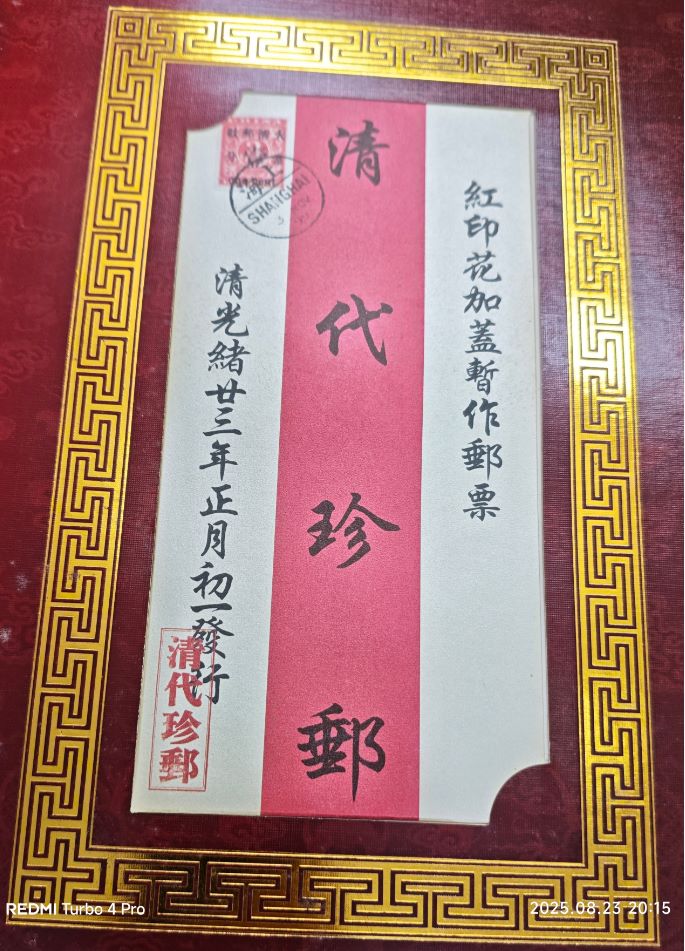 紅印花加蓋暫作郵票
清代珍郵
清光緒廿三年正月初一發行
清代珍郵
SHANGHAI
REDMI Turbo 4 Pro
2025.08.23 20:15